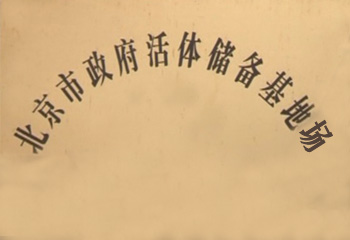 北京市政府活体储备基地场